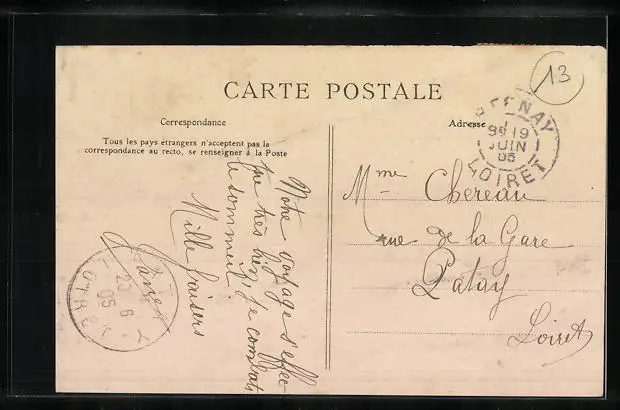 CARTE POSTALE
Correspondance
Tous les pays étrangers n'acceptent pas la
correspondance au recto, se renseigner à la Poste
Adresse
13
9H 19
JUIN
05
LOIRET
Mme Chereau
rue de la Gare
Patay
Loiret
Notre voyage s'effec-
tue très bien, je combats
le sommeil.
Mille baisers
20 6
05